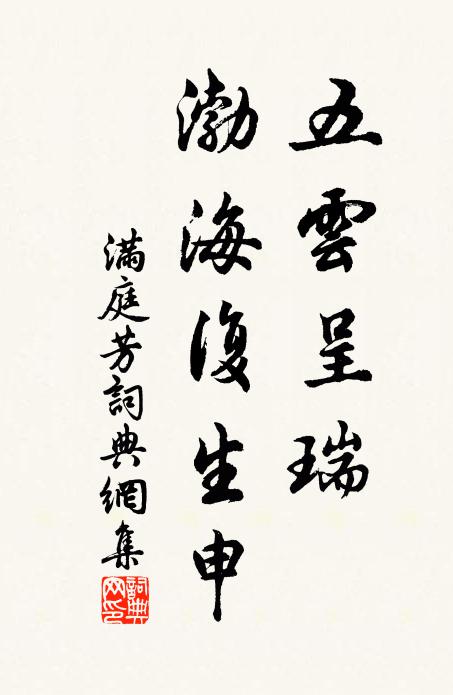 五雲呈瑞
渤海復生申
滿庭芳詞典網集
詞典網印